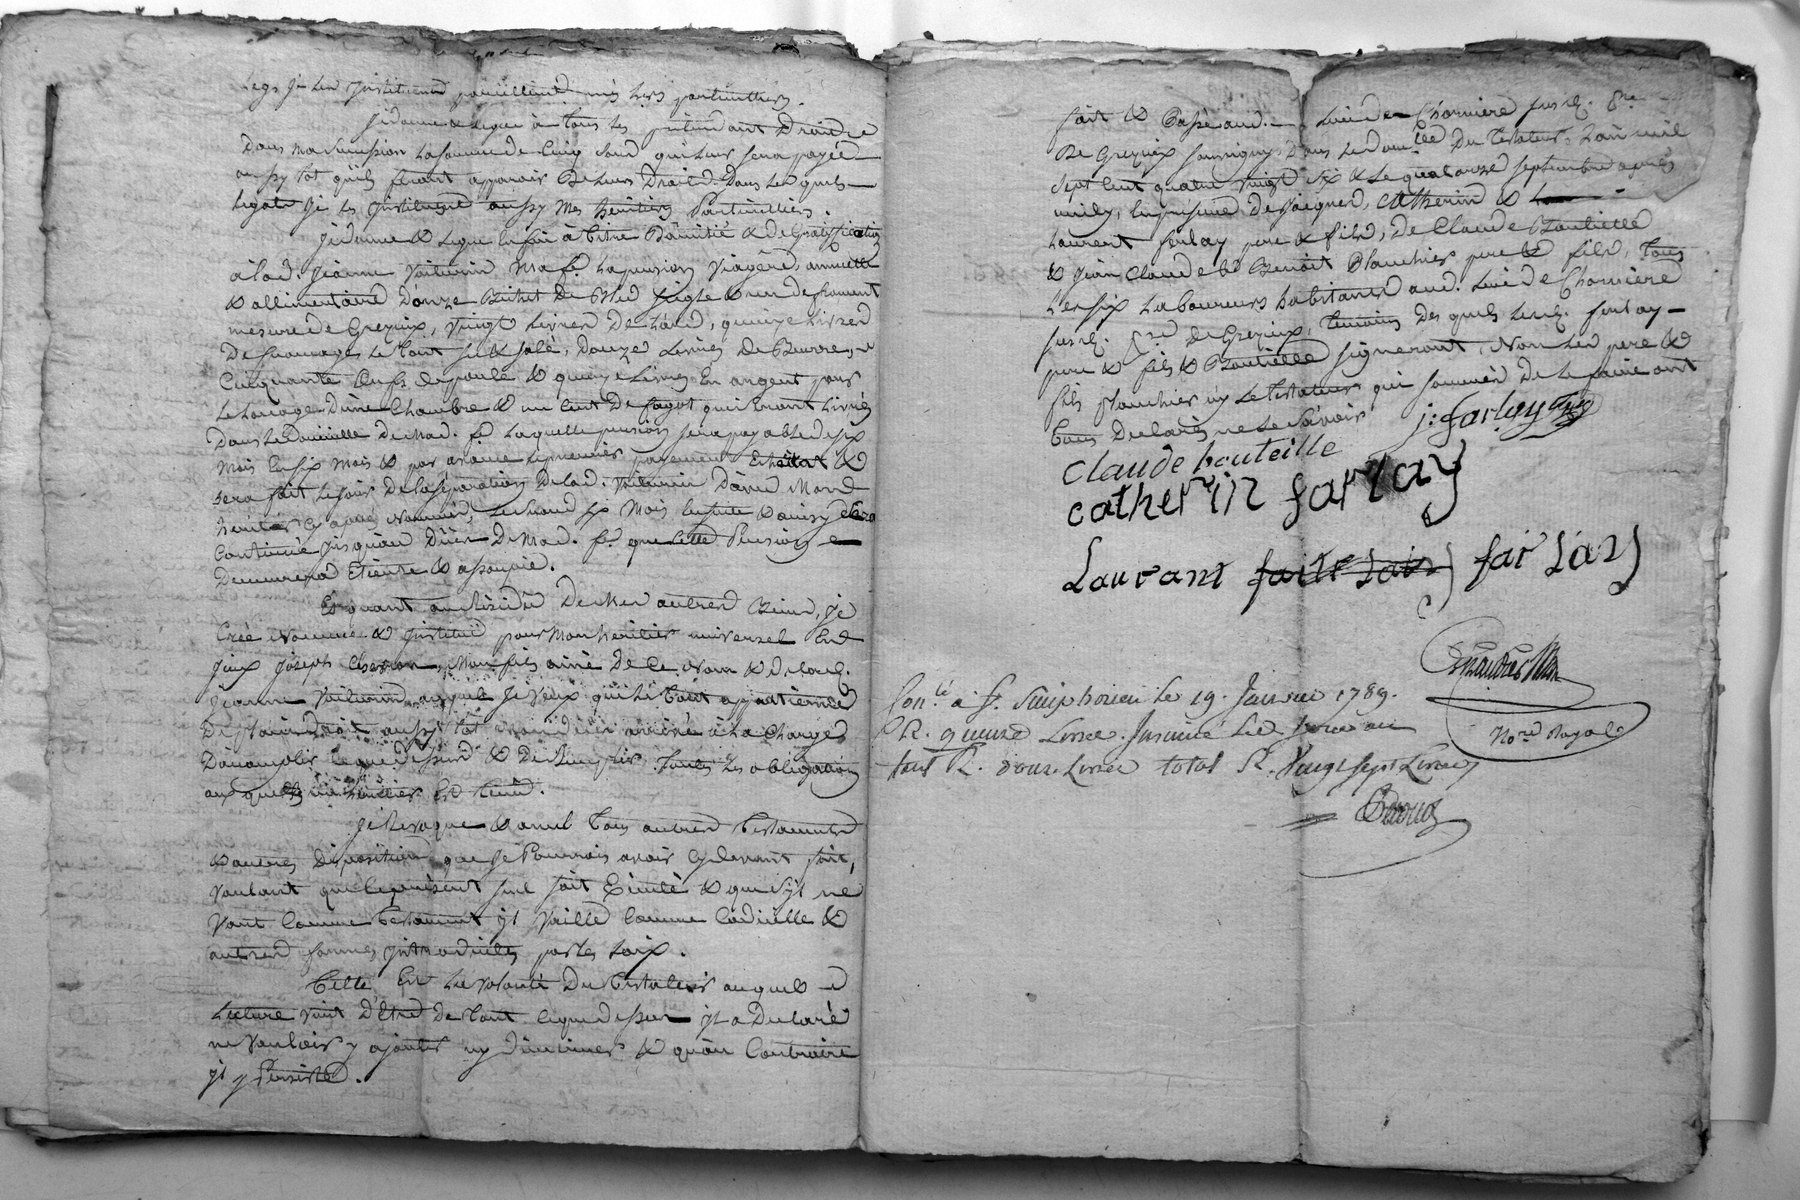 legs je les institue pareillement mes hers particulliers.
Je donne & legue à tous les prétendant Droits
Dans ma succession la somme de Cinq sous qui leur sera payée
aussy tot qu'ils feront apparoir De leurs Droits. Dans les quels
legats je les institue aussy mes heritiers Particulliers.
Je donne & legue enfin à titre D'amitié & de Gratification
à lad. Jeanne Voiturin ma fe. la pension Viagere, annuelle
& allimentaire D'onze Bichet De Bled seigle & un de froment
mesure de Grezieux, Vingt Livres De Lard, quinze Livres
De fromage, le tout sec & salé, Douze Livres De Beurre,
Cinquante Œufs de poule & quinze Livres En argent pour
Le Louage D'une Chambre & un Cent De fagot qui seront Livrés
Dans le Domicille De Mad. fe. laquelle pension sera payable de six
Mois En six mois & par avance le premier payement
sera fait le jour De la séparation De lad. Voiturin D'avec Mond.
héritier cy après Nommé, le second six Mois Ensuite & ainsy
Continué jusqu'au Décès De Mad. fe. que cette Pension
Demeurera Eteinte & assoupie.
Et quant au Résidu De Mes autres Biens, je
Crée Nomme & Institue pour Mon héritier universel
Joseph Mon fils ainé De Ce Nom & de lad.
Jeanne Voiturin auquel Je Veux qu'ils tout appartiennent
De plain droit aussy tôt mon décès arrivé à la Charge
D'accomplir ce que dessus & De Remplir toutes les obligations
aux quelles un héritier Est tenu.
Je Revoque & annul tous autres testaments
& autres Disposition que Je Pourrois avoir cy devant fait,
voulant que le présent seul soit Exécuté & que s'yl ne
Vaut Comme testament yl Vaille Comme Codicille &
autres formes introduites par les Loix.
Telle Est la volonté Du Testateur auquel
Lecture vient D'être De tout ce que dessus yl a Declaré
ne vouloir y ajouter ny Diminuer & qu'au Contraire
yl y Persiste.
fait & Passé aud. Lieu de Charniere susd. Psse
De Grezieux Dans le domlle Du testateur, L'an mil
sept Cent quatre vingt six & Le quatorze septembre après
midy, En presence De Jacques, Catherin &
Laurent ferlay pere & fils, De Claude Bouteille
& Jean Claude & Benoit Planchier pere & fils, tous
Les six Laboureurs habitants aud. Lieu de Charniere
susd. Psse De Grezieux, temoins Des quels Lesd. ferlay
pere & fils & Bouteille signeront, Non Les pere &
fils Planchier ny Le Testateur qui sommés De Le faire ont
tous Declarés ne Le Savoir
j: farlay
Claude bouteille
catherin farlay
Laurant farlay
Nore. Royal
Conlé à St. Simphorien Le 19. Janvier 1789.
R. quinze Livres. Insinué Led. jour au
tard R. douze Livres total R. Vingt sept Livres